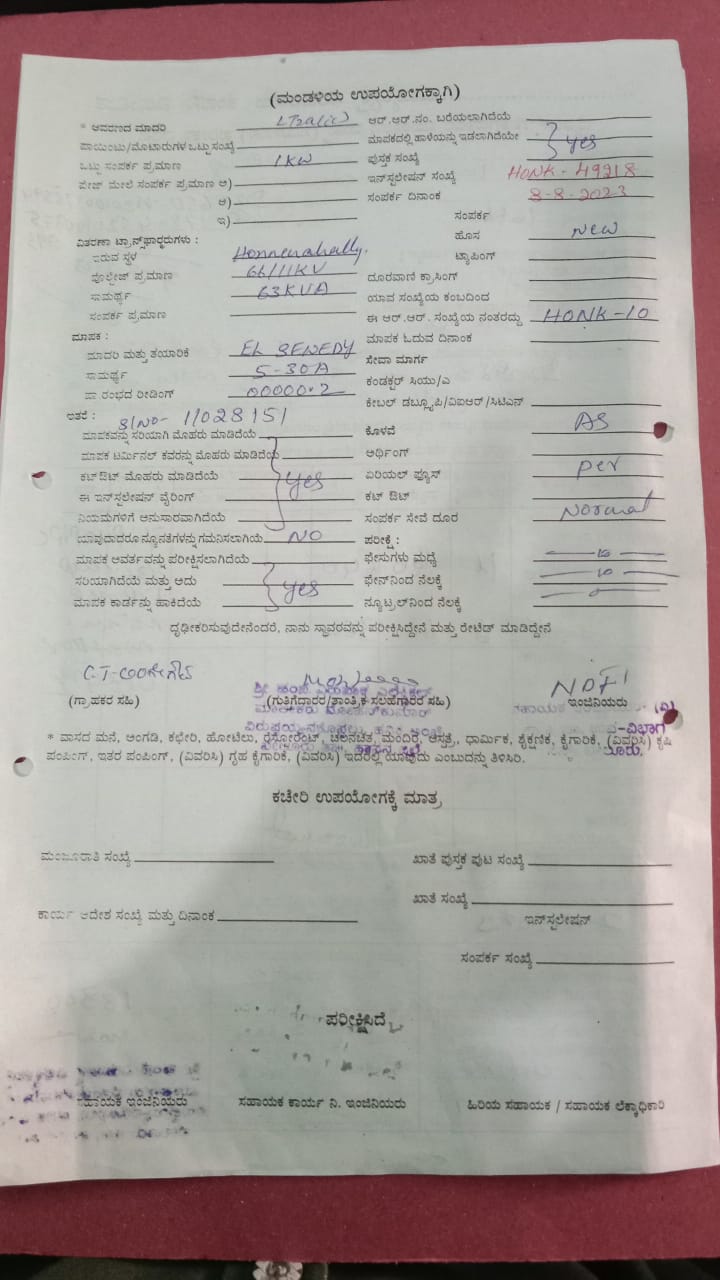 (ಮಂಡಳಿಯ ಉಪಯೋಗಕ್ಕಾಗಿ)
* ಆವರಣದ ಮಾದರಿ ಆರ್.ಆರ್.ನಂ. ಬರೆಯಲಾಗಿದೆಯೆ
ಪಾಯಿಂಟು/ಮೋಟಾರುಗಳ ಒಟ್ಟು ಸಂಖ್ಯೆ ಮಾಪಕದಲ್ಲಿ ಹಾಳೆಯನ್ನು ಇಡಲಾಗಿದೆಯೇ yes
ಒಟ್ಟು ಸಂಪರ್ಕ ಪ್ರಮಾಣ 1KW ಪುಸ್ತಕ ಸಂಖ್ಯೆ
ಪೇಜ್ ಮೇಲೆ ಸಂಪರ್ಕ ಪ್ರಮಾಣ ಅ) ಇನ್‌ಸ್ಟಲೇಷನ್ ಸಂಖ್ಯೆ HONK - 49218
ಆ) ಸಂಪರ್ಕ ದಿನಾಂಕ 8-8-2023
ಇ) ಸಂಪರ್ಕ
ವಿತರಣಾ ಟ್ರಾನ್ಸ್‌ಫಾರ್ಮರುಗಳು : ಹೊಸ New
ಇರುವ ಸ್ಥಳ Honnenahally. ಟ್ಯಾಪಿಂಗ್
ವೋಲ್ಟೇಜ್ ಪ್ರಮಾಣ 66/11KV ದೂರವಾಣಿ ಕ್ರಾಸಿಂಗ್
ಸಾಮರ್ಥ್ಯ 63KVA ಯಾವ ಸಂಖ್ಯೆಯ ಕಂಬದಿಂದ
ಸಂಪರ್ಕ ಪ್ರಮಾಣ ಈ ಆರ್.ಆರ್. ಸಂಖ್ಯೆಯ ನಂತರದ್ದು HONK-10
ಮಾಪಕ : ಮಾಪಕ ಓದುವ ದಿನಾಂಕ
ಮಾದರಿ ಮತ್ತು ತಯಾರಿಕೆ ಸೇವಾ ಮಾರ್ಗ
ಸಾಮರ್ಥ್ಯ 5-30A ಕಂಡಕ್ಟರ್ ಸಿಯು/ಎ
ಪ್ರಾರಂಭದ ರೀಡಿಂಗ್ 00000.2 ಕೇಬಲ್ ಡಬ್ಲ್ಯೂಪಿ/ವಿಐಆರ್/ಸಿಟಿಎನ್
ಇತರೆ : S/NO- 11028151
ಮಾಪಕವನ್ನು ಸರಿಯಾಗಿ ಮೊಹರು ಮಾಡಿದೆಯೆ ಕೊಳವೆ AS
ಮಾಪಕ ಟರ್ಮಿನಲ್ ಕವರನ್ನು ಮೊಹರು ಮಾಡಿದೆಯೆ ಅರ್ಥಿಂಗ್
ಕಟ್‌ಔಟ್ ಮೊಹರು ಮಾಡಿದೆಯೆ yes ಏರಿಯಲ್ ಫ್ಯೂಸ್ per
ಈ ಇನ್‌ಸ್ಟಲೇಷನ್ ವೈರಿಂಗ್ ಕಟ್ ಔಟ್
ನಿಯಮಗಳಿಗೆ ಅನುಸಾರವಾಗಿದೆಯೆ ಸಂಪರ್ಕ ಸೇವೆ ದೂರ Normal
ಯಾವುದಾದರೂ ನ್ಯೂನತೆಗಳನ್ನು ಗಮನಿಸಲಾಗಿಯೆ NO ಪರೀಕ್ಷೆ :
ಮಾಪಕ ಆವರ್ತವನ್ನು ಪರೀಕ್ಷಿಸಲಾಗಿದೆಯೆ ಫೇಸುಗಳು ಮಧ್ಯೆ
ಸರಿಯಾಗಿದೆಯೆ ಮತ್ತು ಅದು yes ಫೇಸ್‌ನಿಂದ ನೆಲಕ್ಕೆ
ಮಾಪಕ ಕಾರ್ಡನ್ನು ಹಾಕಿದೆಯೆ ನ್ಯೂಟ್ರಲ್‌ನಿಂದ ನೆಲಕ್ಕೆ
ದೃಢೀಕರಿಸುವುದೇನೆಂದರೆ, ನಾನು ಸ್ಥಾವರವನ್ನು ಪರೀಕ್ಷಿಸಿದ್ದೇನೆ ಮತ್ತು ರೇಟಿಡ್ ಮಾಡಿದ್ದೇನೆ
(ಗ್ರಾಹಕರ ಸಹಿ) (ಗುತ್ತಿಗೆದಾರರ/ತಾಂತ್ರಿಕ ಸಲಹೆಗಾರರ ಸಹಿ) ಇಂಜಿನಿಯರು
* ವಾಸದ ಮನೆ, ಅಂಗಡಿ, ಕಛೇರಿ, ಹೋಟಿಲು, ರೆಸ್ಟೋರೆಂಟ್, ಚಲನಚಿತ್ರ, ಮಂದಿರ, ಆಸ್ಪತ್ರೆ, ಧಾರ್ಮಿಕ, ಶೈಕ್ಷಣಿಕ, ಕೈಗಾರಿಕೆ, (ವಿವರಿಸಿ) ಕೃಷಿ
ಪಂಪಿಂಗ್, ಇತರ ಪಂಪಿಂಗ್, (ವಿವರಿಸಿ) ಗೃಹ ಕೈಗಾರಿಕೆ, (ವಿವರಿಸಿ) ಇದರಲ್ಲಿ ಯಾವುದು ಎಂಬುದನ್ನು ತಿಳಿಸಿರಿ.
ಕಚೇರಿ ಉಪಯೋಗಕ್ಕೆ ಮಾತ್ರ
ಮಂಜೂರಾತಿ ಸಂಖ್ಯೆ ಖಾತೆ ಪುಸ್ತಕ ಪುಟ ಸಂಖ್ಯೆ
ಖಾತೆ ಸಂಖ್ಯೆ
ಕಾರ್ಯ ಆದೇಶ ಸಂಖ್ಯೆ ಮತ್ತು ದಿನಾಂಕ ಇನ್‌ಸ್ಟಲೇಷನ್
ಸಂಪರ್ಕ ಸಂಖ್ಯೆ
ಪರೀಕ್ಷಿಸಿದೆ
ಸಹಾಯಕ ಇಂಜಿನಿಯರು ಸಹಾಯಕ ಕಾರ್ಯ ನಿ. ಇಂಜಿನಿಯರು ಹಿರಿಯ ಸಹಾಯಕ / ಸಹಾಯಕ ಲೆಕ್ಕಾಧಿಕಾರಿ